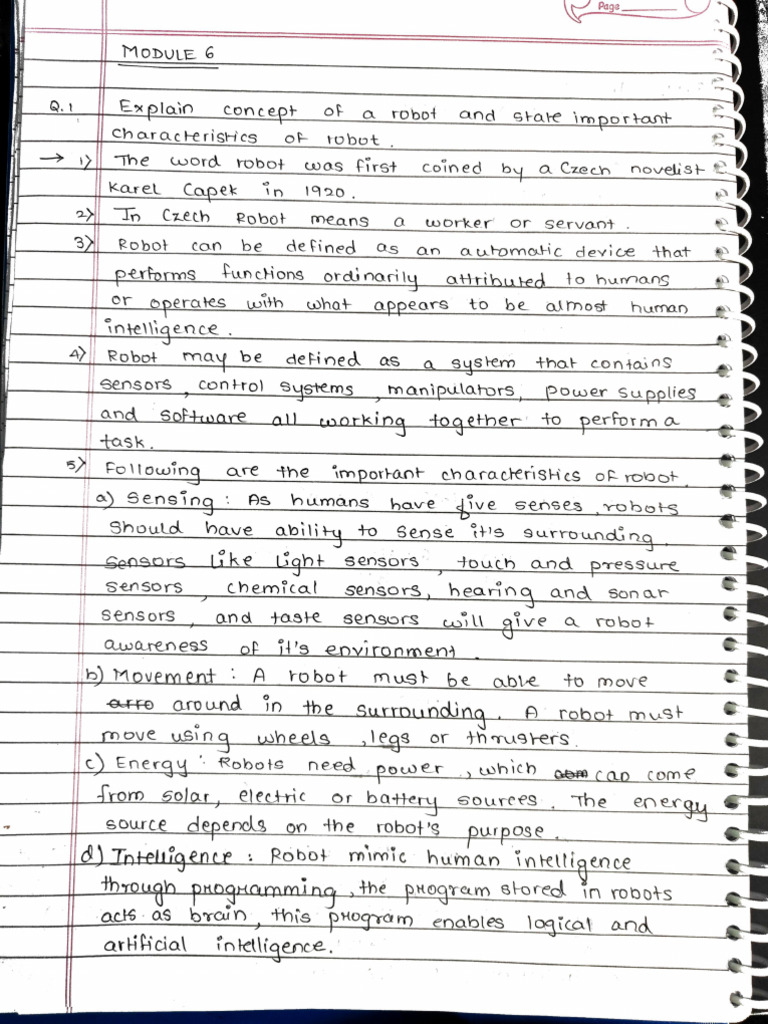 Page
MODULE 6
Q.1 Explain concept of a robot and state important
characteristics of robot.
→ 1) The word robot was first coined by a Czech novelist
Karel Capek in 1920.
2) In Czech Robot means a worker or servant.
3) Robot can be defined as an automatic device that
performs functions ordinarily attributed to humans
or operates with what appears to be almost human
intelligence.
4) Robot may be defined as a system that contains
sensors, control systems, manipulators, power supplies
and software all working together to perform a
task.
5) Following are the important characteristics of robot.
a) Sensing : As humans have five senses, robots
should have ability to sense it's surrounding.
Sensors like light sensors, touch and pressure
sensors, chemical sensors, hearing and sonar
sensors, and taste sensors will give a robot
awareness of it's environment.
b) Movement : A robot must be able to move
arro around in the surrounding. A robot must
move using wheels, legs or thrusters.
c) Energy : Robots need power, which can come
from solar, electric or battery sources. The energy
source depends on the robot's purpose.
d) Intelligence : Robot mimic human intelligence
through programming, the program stored in robots
acts as brain, this program enables logical and
artificial intelligence.